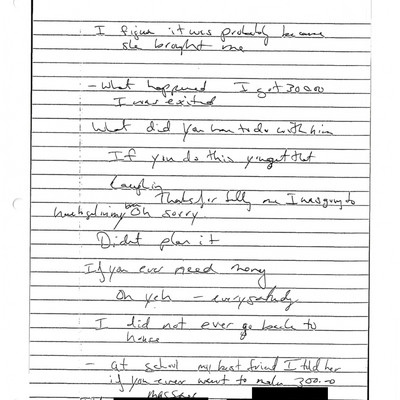 I figure it was probably because
she brought me
- What happened I got 300.00
I was exited
What did you have to do with him
If you do this you get that
Laughing
Thanks for telling me I was going to
Oh sorry.
Didnt plan it
If you ever need money
Oh yeh - everybody
I did not ever go back to
house
- at school my best friend I told her
if you ever want to make 300.00
massage